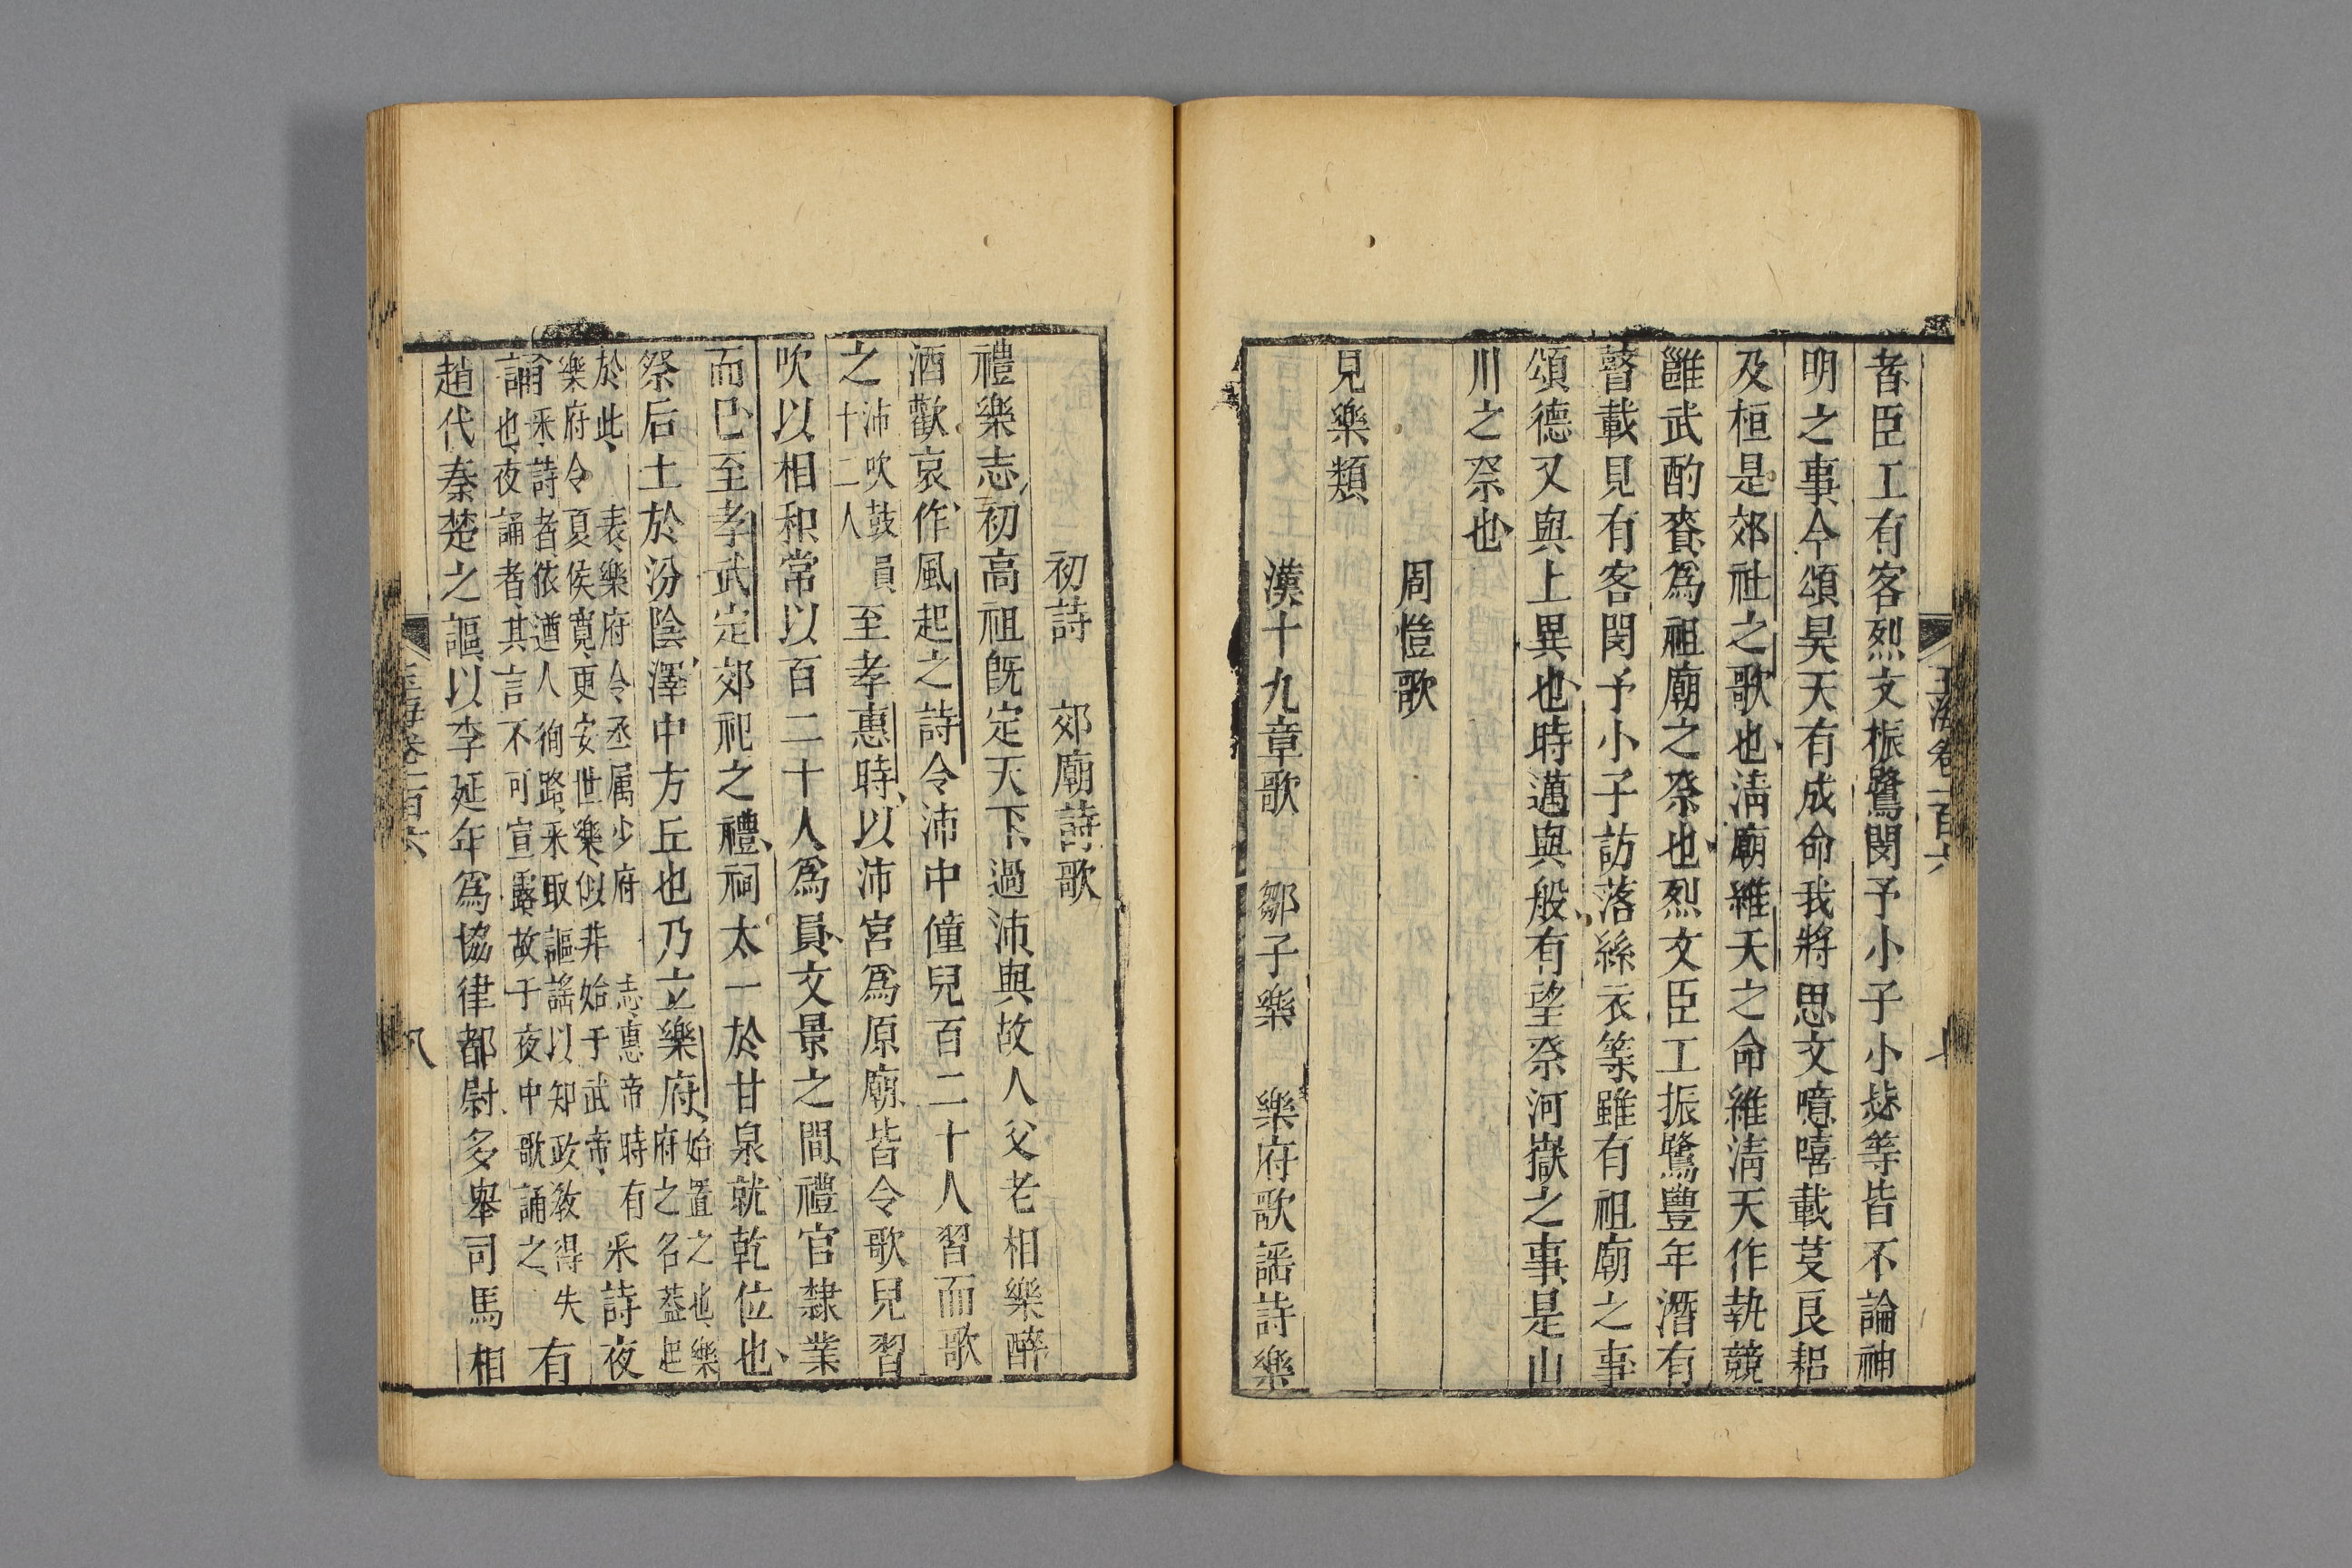 者臣工有客烈文振鷺閔予小子小毖等皆不論神
明之事今頌昊天有成命我將思文噫嘻載芟良耜
及桓是郊社之歌也清廟維天之命維清天作執競
雝武酌賚爲祖廟之祭也烈文臣工振鷺豐年潛有
瞽載見有客閔予小子訪落絲衣等雖有祖廟之事
頌德又與上異也時邁與般有望祭河嶽之事是山
川之祭也
周愷歌
見樂類
漢十九章歌 鄒子樂 樂府歌謡詩樂
初詩 郊廟詩歌
禮樂志初高祖旣定天下過沛與故人父老相樂醉
酒歡哀作風起之詩令沛中僮兒百二十人習而歌
之沛吹鼓員十二人至孝惠時以沛宮爲原廟皆令歌兒習
吹以相和常以百二十人爲員文景之間禮官隷業
而已至孝武定郊祀之禮祠太一於甘泉就乾位也
祭后土於汾陰澤中方丘也乃立樂府始置之也樂府之名葢起
於此表樂府令丞屬少府志惠帝時有樂府令夏侯寛更安世樂似非始于武帝采詩夜
誦采詩者依遒人徇路采取謳謠以知政敎得失也夜誦者其言不可宣露故于夜中歌誦之有
趙代秦楚之謳以李延年爲協律都尉多舉司馬相
玉海卷一百六
八